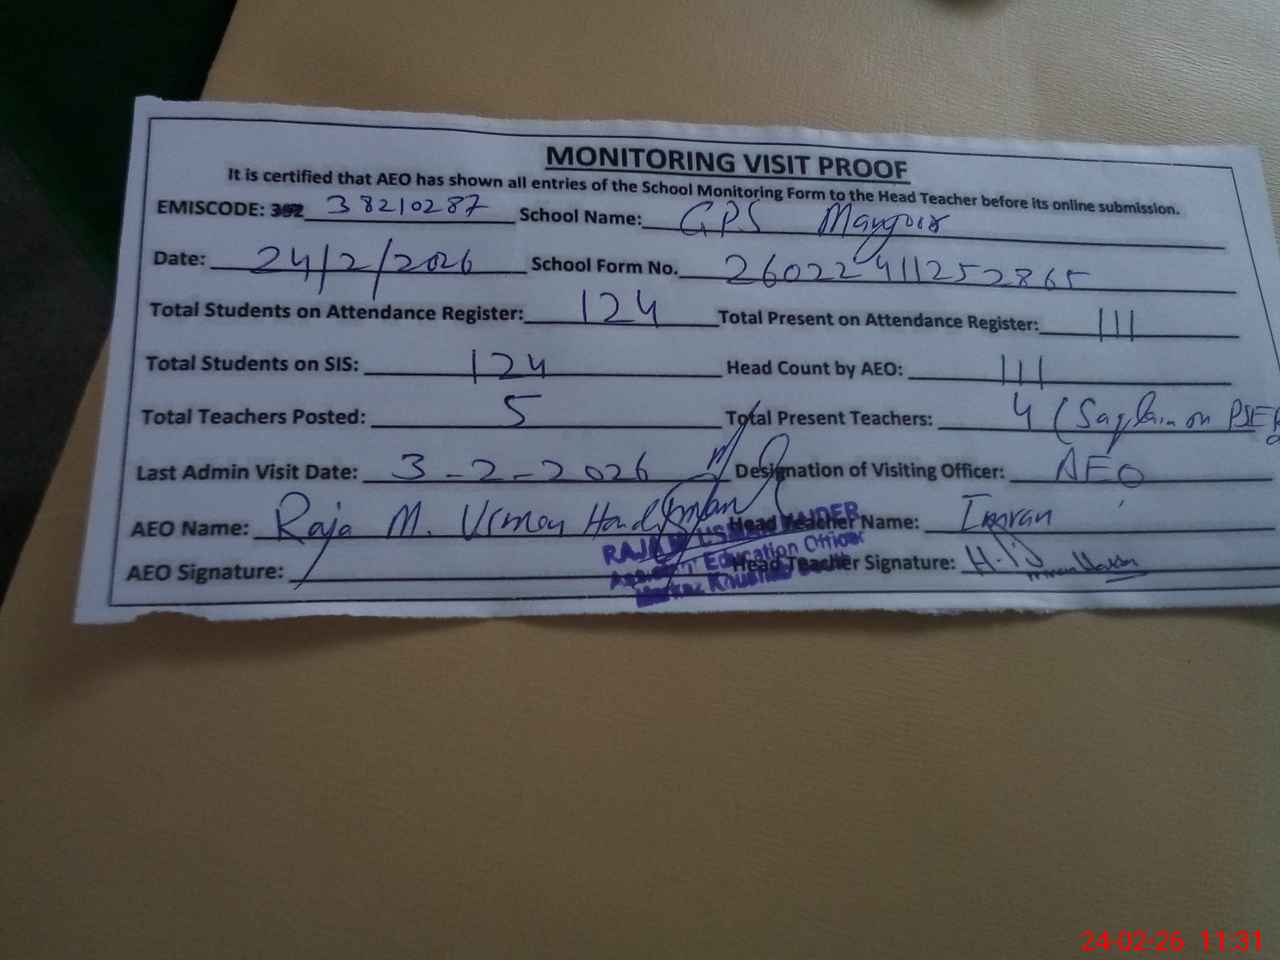 MONITORING VISIT PROOF
It is certified that AEO has shown all entries of the School Monitoring Form to the Head Teacher before its online submission.
EMISCODE: 38210287 School Name: GPS
Date: 24/2/2026 School Form No. 26022411252865
Total Students on Attendance Register: 124 Total Present on Attendance Register: 111
Total Students on SIS: 124 Head Count by AEO: 111
Total Teachers Posted: 5 Total Present Teachers: 4 (Saqlain on
Last Admin Visit Date: 3-2-2026 Designation of Visiting Officer: AEO
AEO Name: Raja M. Usman Head Teacher Name: Imran
AEO Signature: Head Teacher Signature:
Education Officer
24-02-26 11:31